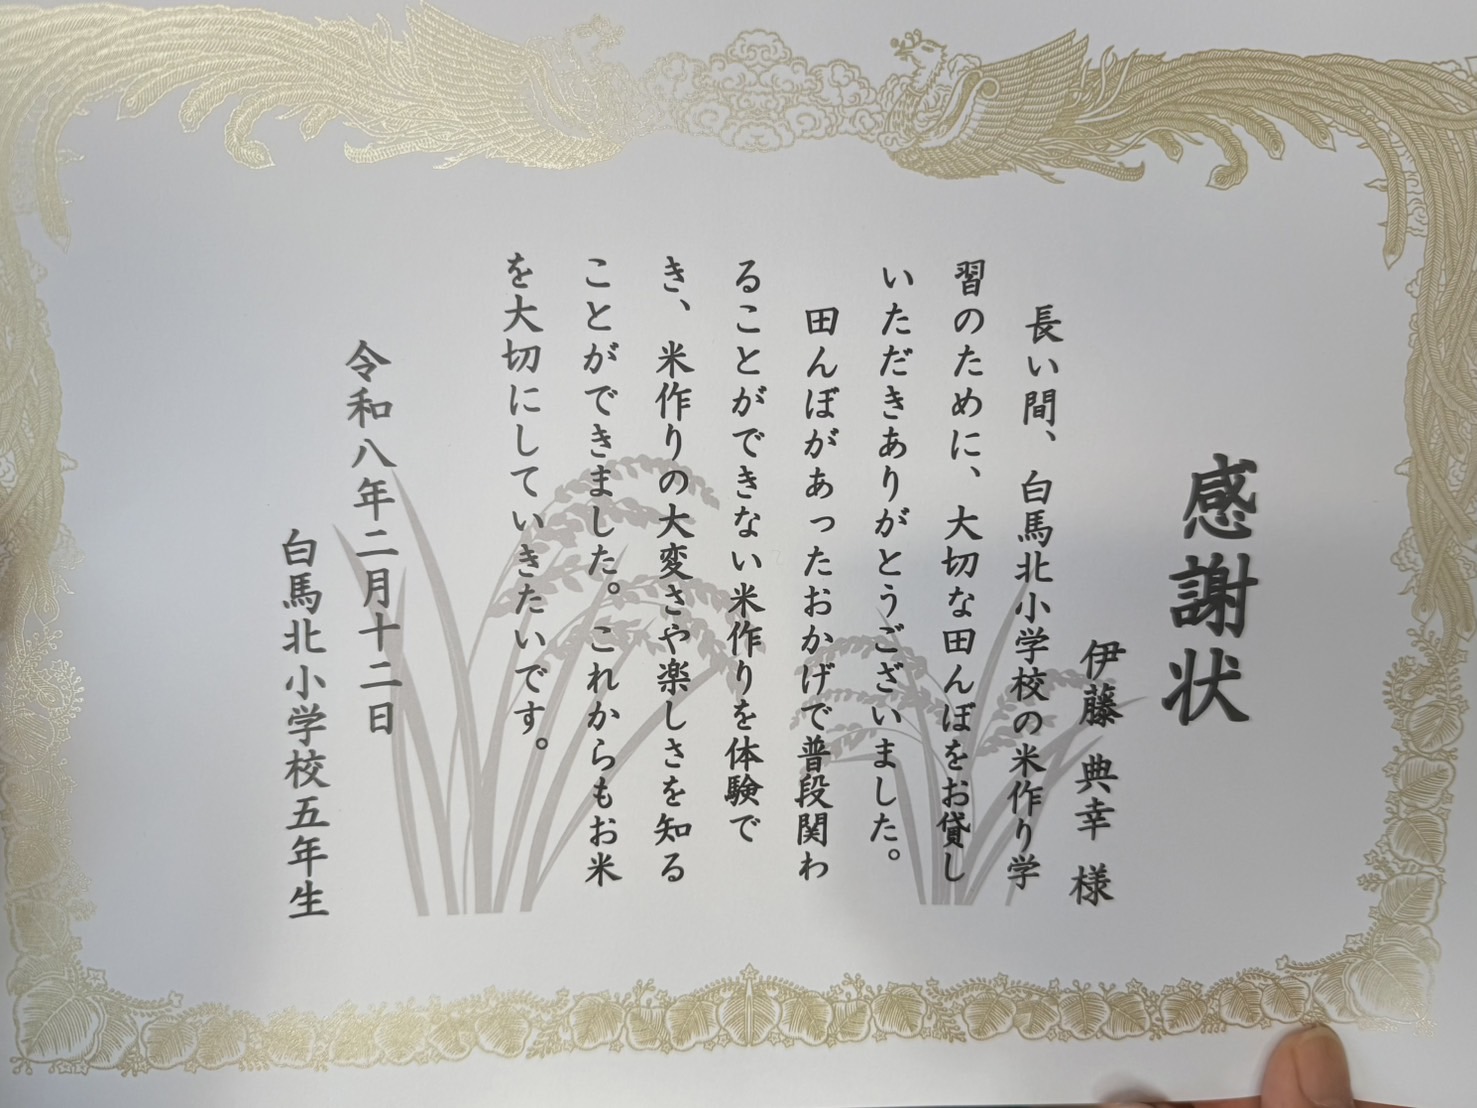 感謝状
伊藤 典幸 様
長い間、白馬北小学校の米作り学
習のために、大切な田んぼをお貸し
いただきありがとうございました。
田んぼがあったおかげで普段関わ
ることができない米作りを体験で
き、米作りの大変さや楽しさを知る
ことができました。これからもお米
を大切にしていきたいです。
令和八年二月十二日
白馬北小学校五年生